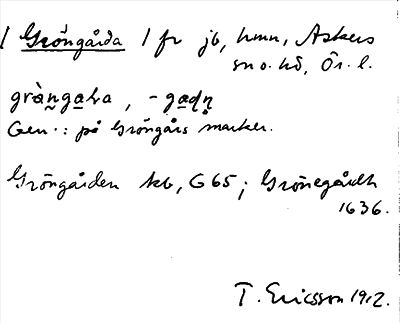 / Gröngårda / fr jb, hmn, Askers
sn o. hd, Ör. l.
gràn̰ga̲ɖa, -ga̲ɖn̥
Gen.: på Gröngårs marker.
Gröngården kb, G65; Grönegårdh
1636.
T. Ericsson 1912.